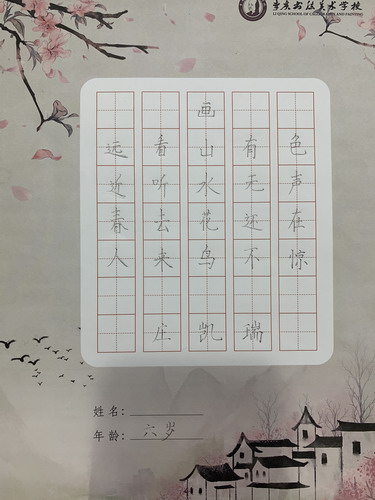 李庆书法美术学校
LI QING SCHOOL OF CALLIGRAPHY AND PAINTING
画
远看山有色
近听水无声
春去花还在
人来鸟不惊
庄凯瑞
姓名:
年龄: 六岁